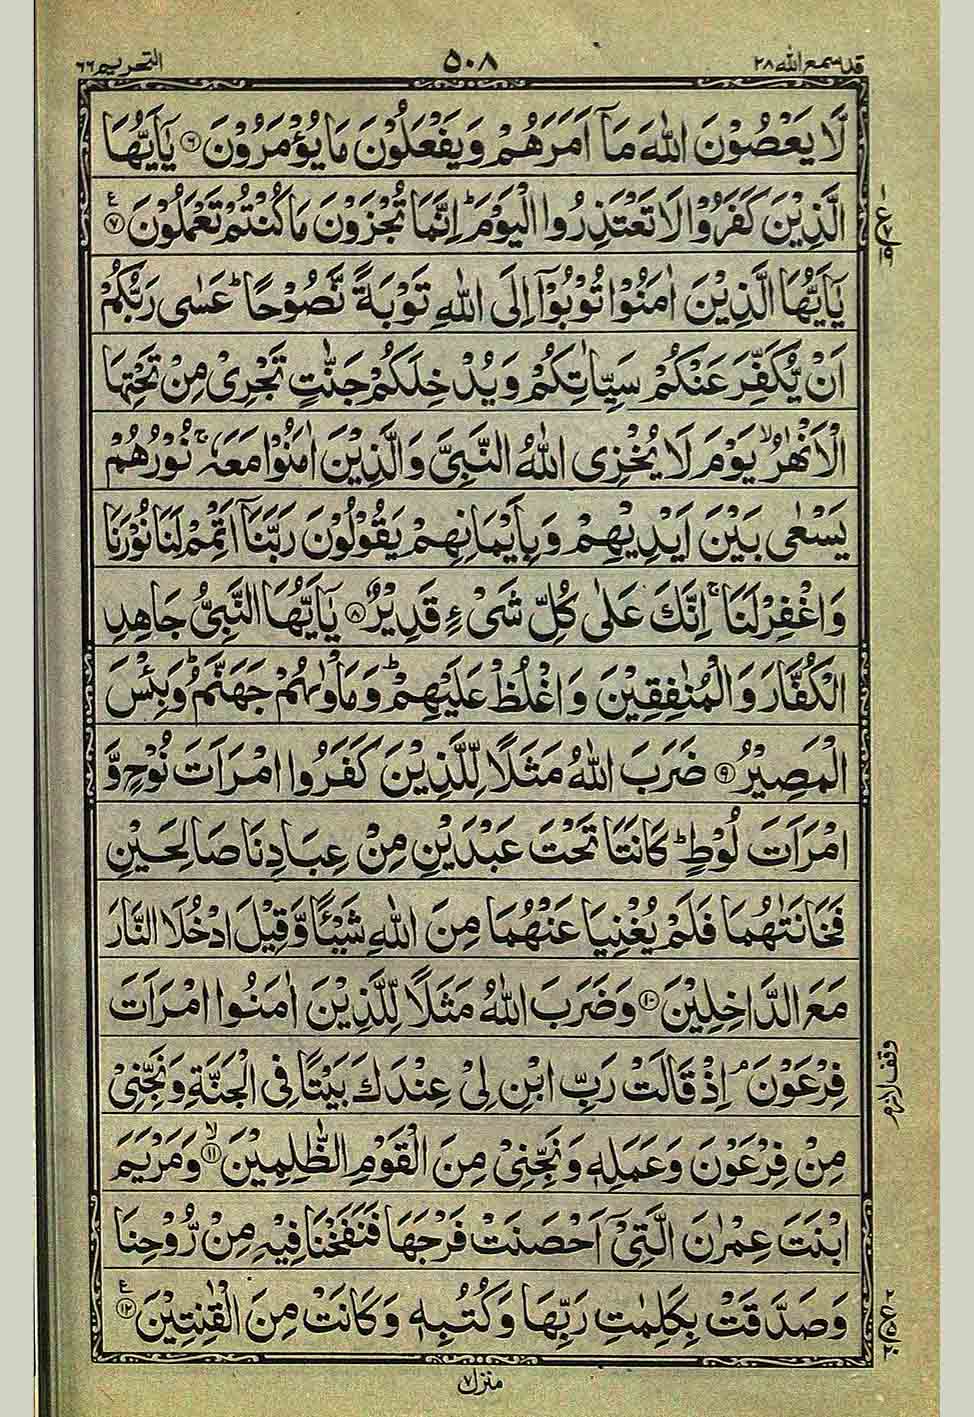 قد سمع الله ٢٨
٥٠٨
التحريم ٦٦
لَّا يَعْصُوْنَ اللّٰهَ مَآ اَمَرَهُمْ وَيَفْعَلُوْنَ مَا يُؤْمَرُوْنَ ۝٦ يٰٓاَيُّهَا
الَّذِيْنَ كَفَرُوْا لَا تَعْتَذِرُوا الْيَوْمَ ؕ اِنَّمَا تُجْزَوْنَ مَا كُنْتُمْ تَعْمَلُوْنَ ۝٧ ع
يٰٓاَيُّهَا الَّذِيْنَ اٰمَنُوْا تُوْبُوْٓا اِلَى اللّٰهِ تَوْبَةً نَّصُوْحًا ؕ عَسٰى رَبُّكُمْ
اَنْ يُّكَفِّرَ عَنْكُمْ سَيِّاٰتِكُمْ وَيُدْخِلَكُمْ جَنّٰتٍ تَجْرِىْ مِنْ تَحْتِهَا
الْاَنْهٰرُ ۙ يَوْمَ لَا يُخْزِى اللّٰهُ النَّبِىَّ وَالَّذِيْنَ اٰمَنُوْا مَعَهٗ ۚ نُوْرُهُمْ
يَسْعٰى بَيْنَ اَيْدِيْهِمْ وَبِاَيْمَانِهِمْ يَقُوْلُوْنَ رَبَّنَآ اَتْمِمْ لَنَا نُوْرَنَا
وَاغْفِرْ لَنَا ۚ اِنَّكَ عَلٰى كُلِّ شَىْءٍ قَدِيْرٌ ۝٨ يٰٓاَيُّهَا النَّبِىُّ جَاهِدِ
الْكُفَّارَ وَالْمُنٰفِقِيْنَ وَاغْلُظْ عَلَيْهِمْ ؕ وَمَاْوٰىهُمْ جَهَنَّمُ ؕ وَبِئْسَ
الْمَصِيْرُ ۝٩ ضَرَبَ اللّٰهُ مَثَلًا لِّلَّذِيْنَ كَفَرُوا امْرَاَتَ نُوْحٍ وَّ
امْرَاَتَ لُوْطٍ ؕ كَانَتَا تَحْتَ عَبْدَيْنِ مِنْ عِبَادِنَا صَالِحَيْنِ
فَخَانَتٰهُمَا فَلَمْ يُغْنِيَا عَنْهُمَا مِنَ اللّٰهِ شَيْئًا وَّقِيْلَ ادْخُلَا النَّارَ
مَعَ الدَّاخِلِيْنَ ۝١٠ وَضَرَبَ اللّٰهُ مَثَلًا لِّلَّذِيْنَ اٰمَنُوا امْرَاَتَ
فِرْعَوْنَ ۘ اِذْ قَالَتْ رَبِّ ابْنِ لِىْ عِنْدَكَ بَيْتًا فِى الْجَنَّةِ وَنَجِّنِىْ
مِنْ فِرْعَوْنَ وَعَمَلِهٖ وَنَجِّنِىْ مِنَ الْقَوْمِ الظّٰلِمِيْنَ ۝١١ ۙ وَمَرْيَمَ
ابْنَتَ عِمْرٰنَ الَّتِىْٓ اَحْصَنَتْ فَرْجَهَا فَنَفَخْنَا فِيْهِ مِنْ رُّوْحِنَا
وَصَدَّقَتْ بِكَلِمٰتِ رَبِّهَا وَكُتُبِهٖ وَكَانَتْ مِنَ الْقٰنِتِيْنَ ۝١٢ ع
وقف لازم
منزل ٧